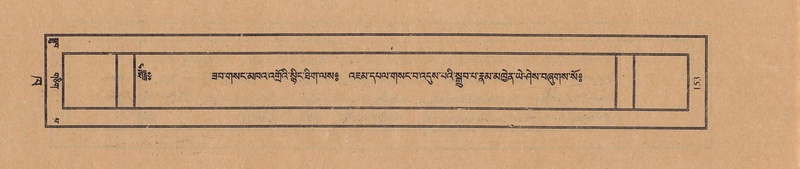 ཟབ་གསང་མཁའ་འགྲོའི་སྙིང་ཐིག་ལས༔ འཇམ་དཔལ་གསང་བ་འདུས་པའི་སྒྲུབ་པ་རྣམ་མཁྱེན་ཡེ་ཤེས་བཞུགས་སོ༔
153